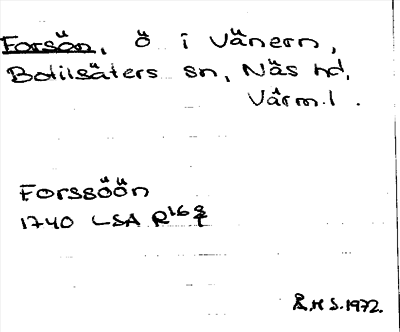 Forsön, ö i Vänern,
Botilsäters sn, Näs hd,
Värml.
Forssöön
1740 LSA R16
Å.H S. 1972.